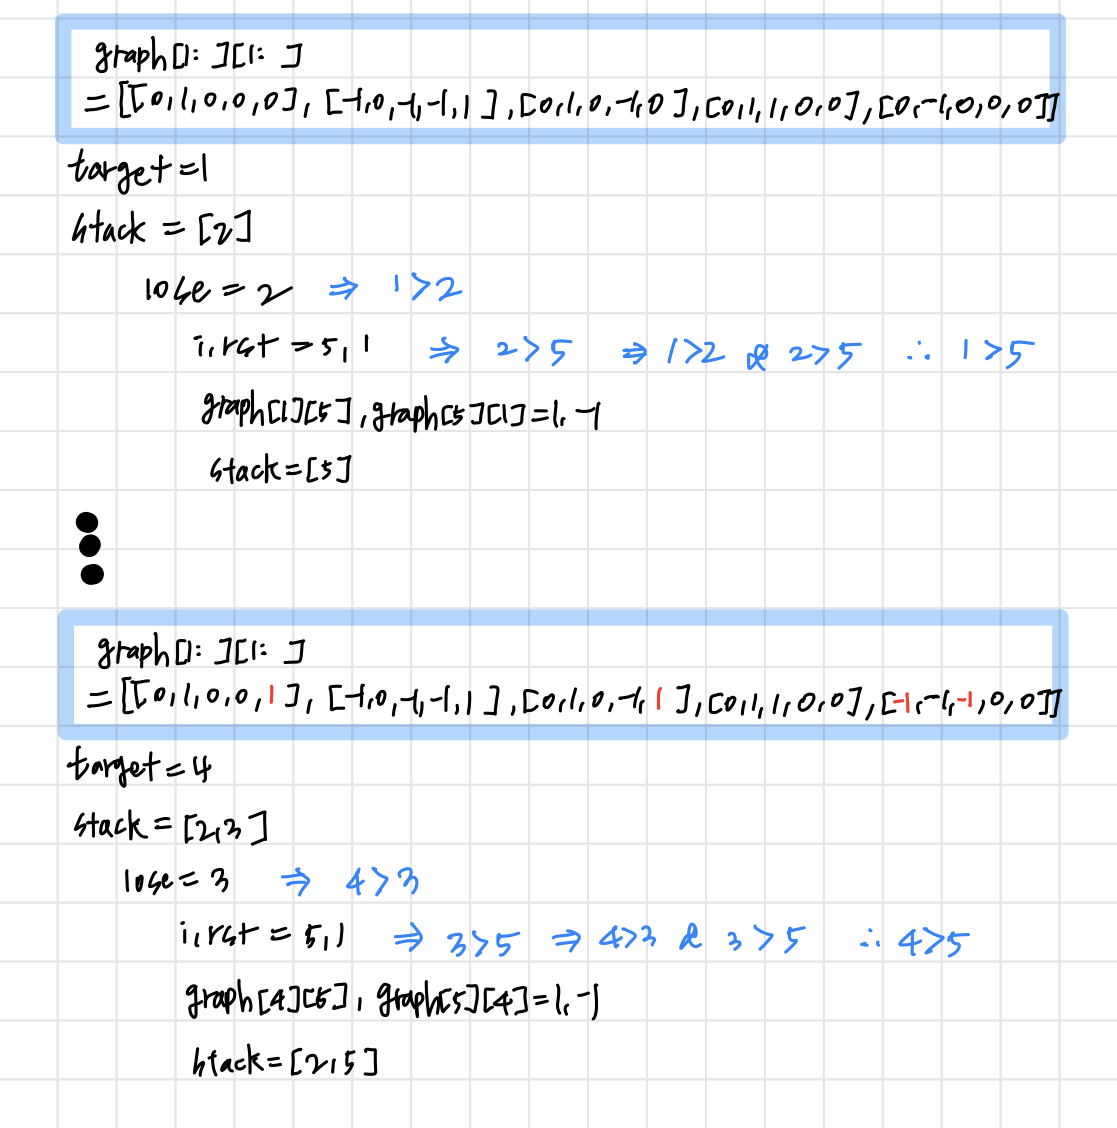 graph[1: ][1: ]
= [[0,1,0,0,0], [-1,0,-1,-1,1], [0,1,0,-1,0], [0,1,1,0,0], [0,-1,0,0,0]]
target=1
stack = [2]
lose = 2 ⇒ 1>2
i, rst = 5, 1 ⇒ 2>5 ⇒ 1>2 & 2>5 ∴ 1>5
graph[1][5], graph[5][1]=1, -1
stack=[5]
graph[1: ][1: ]
= [[0,1,0,0,1], [-1,0,-1,-1,1], [0,1,0,-1,1], [0,1,1,0,0], [-1,-1,-1,0,0]]
target=4
stack = [2,3]
lose = 3 ⇒ 4>3
i, rst = 5, 1 ⇒ 3>5 ⇒ 4>3 & 3>5 ∴ 4>5
graph[4][5], graph[5][4]=1, -1
stack=[2,5]